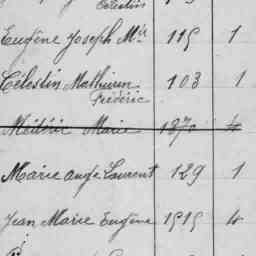 Célestin
Eugène Joseph Mie 115 1
Célestin Mathurin 103 1
Frédéric
Médéric Marie 1870 4
Marie Ange Laurent 129 1
Jean Marie Eugène 1515 4